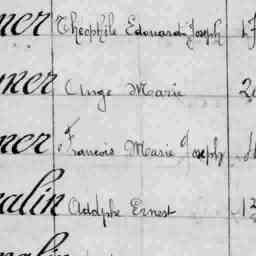 mer Theophile Edouard Joseph 1
mer Ange Marie 2
mer Francois Marie Joseph
alin Adolphe Ernest 13